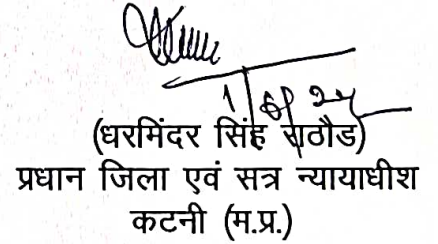 1/6/24
(धरमिंदर सिंह राठौड)
प्रधान जिला एवं सत्र न्यायाधीश
कटनी (म.प्र.)